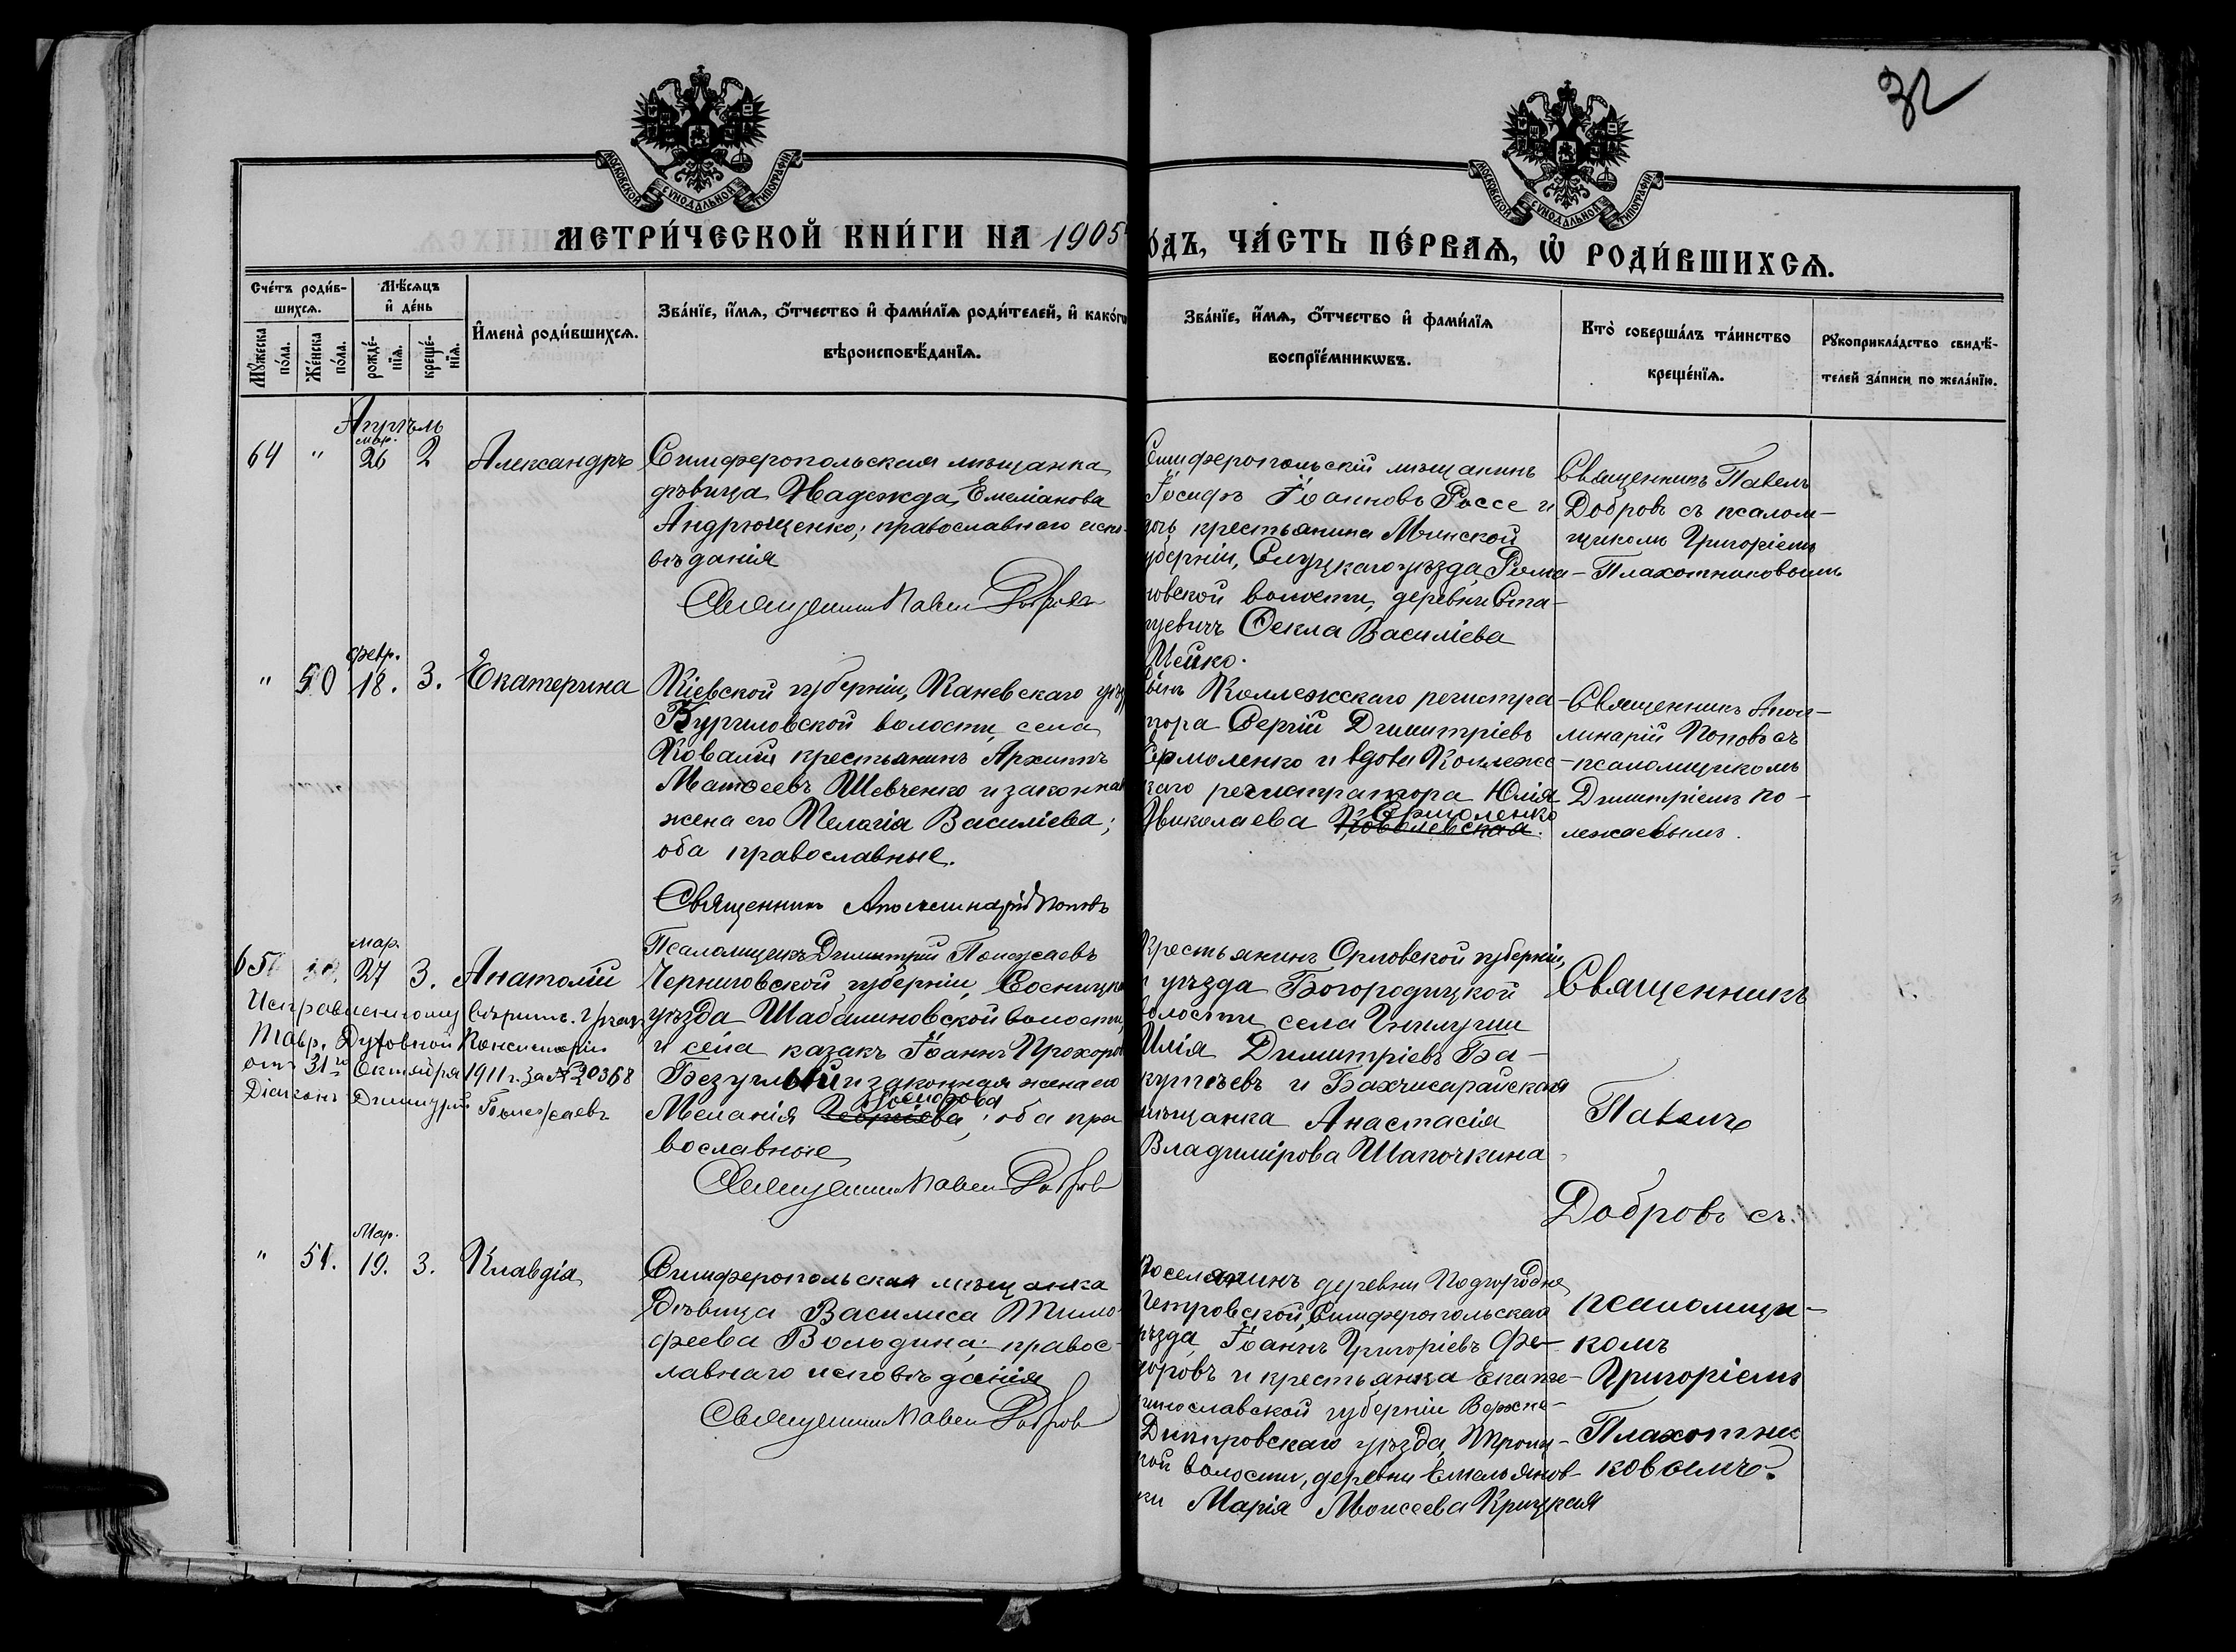 32
МОСКОВСКОЙ СѴНОДАЛЬНОЙ ТИПОГРАФІИ
МОСКОВСКОЙ СѴНОДАЛЬНОЙ ТИПОГРАФІИ
МЕТРИ́ЧЕСКОЙ КНИ́ГИ НА 1905
ОДЪ, ЧА́СТЬ ПЕ́РВАѦ, Ѡ҆ РОДИ́ВШИХСѦ.
Сче́тъ роди́в-
шихсѧ.
Мꙋ́жеска по́ла.
Же́нска по́ла.
Мѣ́сѧцъ
и҆ де́нь
рожде́-нїѧ.
креще́-нїѧ.
И҆мена̀ роди́вшихсѧ.
Зва́нїе, и҆́мѧ, ѻ҆́тчество и҆ фами́лїѧ роди́телей, и҆ како́гѡ
вѣроисповѣ́данїѧ.
Зва́нїе, и҆́мѧ, ѻ҆́тчество и҆ фами́лїѧ
воспрїе́мникѡвъ.
Кто̀ соверша́лъ та́инство
креще́нїѧ.
Рꙋкоприкла́дство свидѣ́-
телей за́писи по жела́нїю.
Апрѣль
64 " мар. 26 2 Александръ
Симферопольская мѣщанка
дѣвица Надежда Емеліанова
Андрющенко; православнаго испо-
вѣданія
Священникъ Павелъ Добровъ
Симферопольскій мѣщанинъ
Іосифъ Іоанновъ Россе и
дочь крестьянина Минской
губерніи, Слуцкаго уѣзда, Рома-
новской волости, деревни Ста-
цевичъ Ѳекла Василіева
Мейко.
Священникъ Павелъ
Добровъ съ псалом-
щикомъ Григоріемъ
Плахотниковымъ
" 50 февр. 18. 3. Екатерина
Кіевской губерніи, Каневскаго уѣз
волости, села
Ковали крестьянинъ Архиппъ
Матѳеевъ Шевченко и законная
жена его Пелагія Василіева;
оба православные.
Священникъ Аполлинарій Поповъ
Коллежскаго регистра-
тора Сергій Димитріевъ
Ермоленко и вдова Коллежс-
каго регистратора Юлія
Николаева Ермоленко
Священникъ Апол-
линарій Поповъ съ
псаломщикомъ
Димитріемъ По-
лежаевымъ.
Псаломщикъ Димитрій Полежаевъ
65 мар. 27 3. Анатолій
Исправленному вѣрить.
Тавр. Духовной Консисторіи
отъ 31го Октября 1911 г. за № 20368
Діаконъ Димитрій Полежаевъ
Черниговской губерніи, Сосницка
уѣзда Шабалиновской волости,
и села казакъ Іоаннъ Прохоров
Безуглый и законная жена его
Меланія Іосифова; оба пра
вославные
Священникъ Павелъ Добровъ
Крестьянинъ Орловской губерніи,
и уѣзда Богородицкой
волости, села
Илія Димитріевъ Ба-
и Бахчисарайская
мѣщанка Анастасія
Владимірова Шапочкина
Священникъ
Павелъ
Добровъ съ
псаломщи-
комъ
Григоріемъ
Плахотни
ковымъ.
" 51. Мар. 19. 3. Клавдія
Симферопольская мѣщанка
Дѣвица Василиса Тимо
феева Володина; правос-
лавнаго исповѣданія
Священникъ Павелъ Добровъ
Поселянинъ деревни Подгородне
Петровской, Симферопольскаго
уѣзда, Іоаннъ Григоріевъ Фе-
доровъ и крестьянка Екате-
ринославской губерніи Верхне-
Днѣпровскаго уѣзда Троиц-
кой волости, деревни Емельянов-
ки Марія Моисеева Крицкая